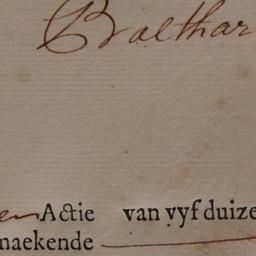 Balthar
en Actie van vyf duize
maekende